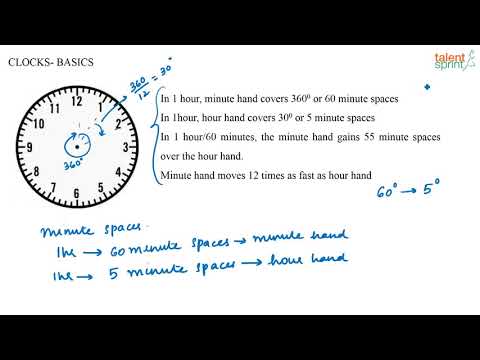 talent
sprint
CLOCKS- BASICS
360/12 = 30°
11 12 1
10 2
9 3
8 4
7 6 5
360°
In 1 hour, minute hand covers 360⁰ or 60 minute spaces
In 1hour, hour hand covers 30⁰ or 5 minute spaces
In 1 hour/60 minutes, the minute hand gains 55 minute spaces
over the hour hand.
Minute hand moves 12 times as fast as hour hand
60° → 5°
Minute spaces.
1hr → 60 minute spaces → minute hand
1hr → 5 minute spaces → hour hand